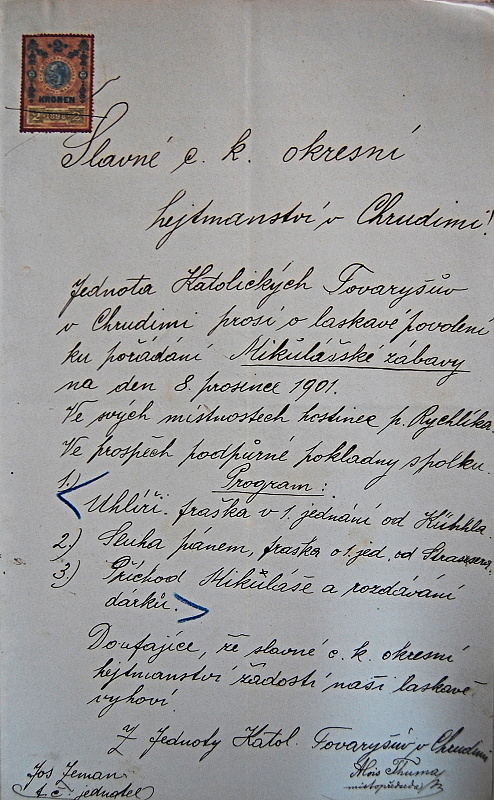 2
KRONEN
2 1898 2
Slavné c. k. okresní
hejtmanství v Chrudimi!
Jednota Katolických Tovaryšův
v Chrudimi prosí o laskavé povolení
ku pořádání Mikulášské zábavy
na den 8. prosince 1901.
Ve svých místnostech hostinec p. Rychlíka.
Ve prospěch podpůrné pokladny spolku.
Program:
1.) Uhlíři. fraška v 1. jednání od
2.) Sluha pánem, fraška o 1 jed. od
3.) Příchod Mikuláše a rozdávání
dárků.
Doufajíce, že slavné c. k. okresní
hejtmanství žádosti naší laskavě
vyhoví.
Z Jednoty Katol. Tovaryšův v Chrudimi
Jos Zeman
t. č. jednatel
Alois Thuma
místopředseda